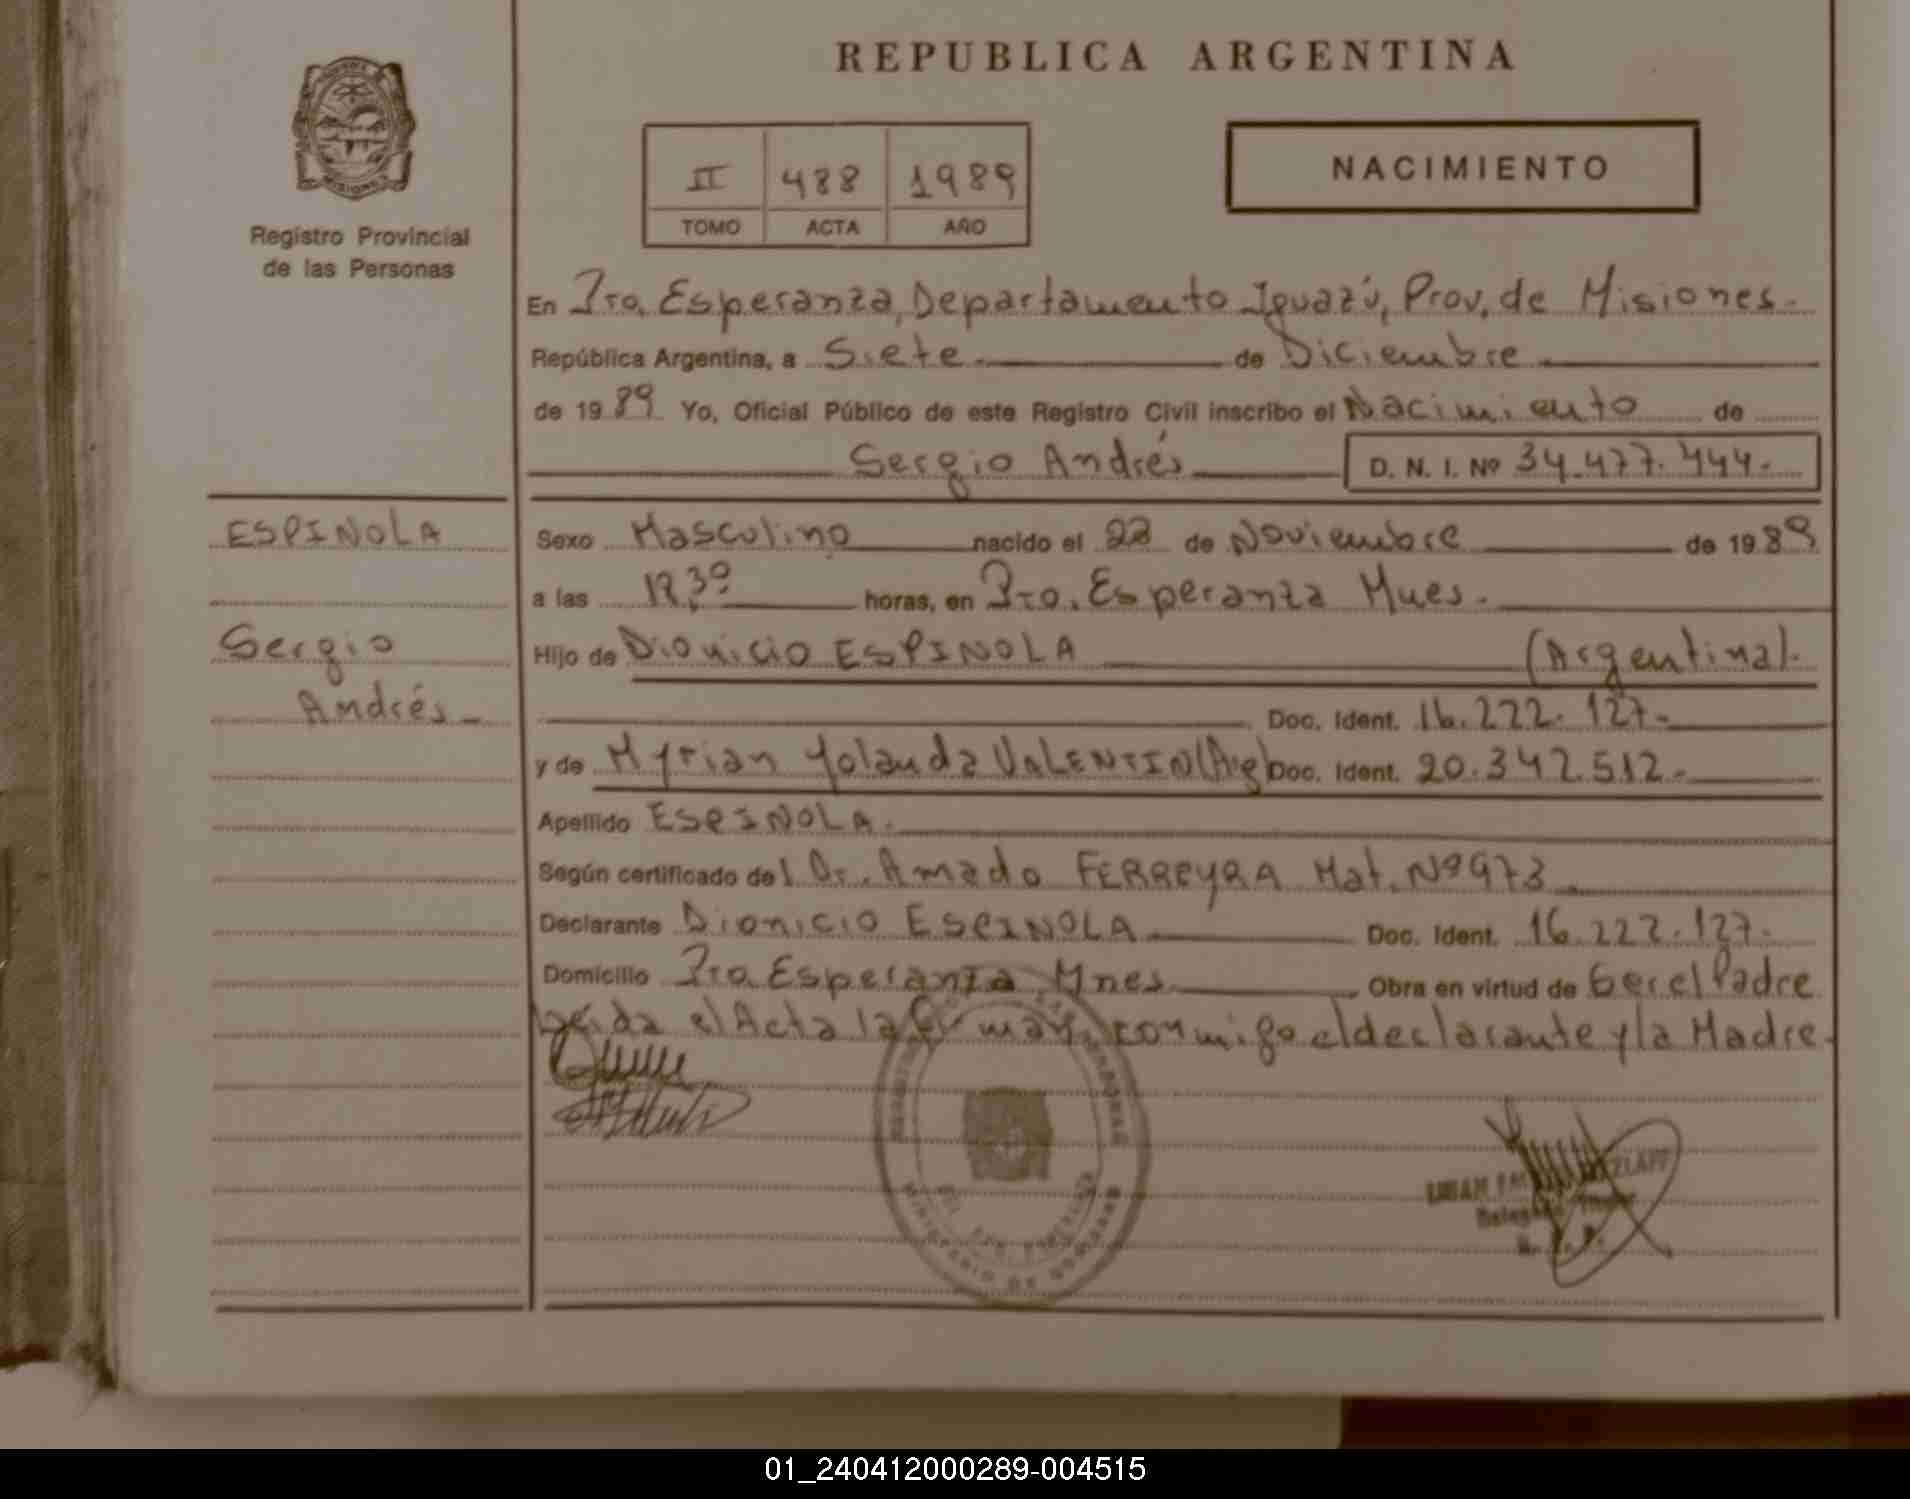 REPUBLICA ARGENTINA
MISIONES
Registro Provincial
de las Personas
II 488 1989
TOMO ACTA AÑO
NACIMIENTO
En Pto. Esperanza, Departamento Iguazú, Prov. de Misiones.
República Argentina, a Siete de Diciembre
de 1989 Yo, Oficial Público de este Registro Civil inscribo el Nacimiento de
Sergio Andrés D. N. I. Nº 34.477.444.
ESPINOLA
Sergio
Andrés
Sexo Masculino nacido el 22 de Noviembre de 1989
a las horas, en Pto. Esperanza Mnes.
Hijo de Dionicio ESPINOLA (Argentina).
Doc. Ident. 16.222.127.
y de Myrian Yolanda VALENTIN (Arg) Doc. Ident. 20.342.512.
Apellido ESPINOLA.
Según certificado del Dr. Amado FERREYRA Mat. Nº 973
Declarante Dionicio ESPINOLA Doc. Ident. 16.222.127.
Domicilio Pto. Esperanza Mnes Obra en virtud de Ser el Padre
Leída el Acta la firman conmigo el declarante y la Madre.
MINISTERIO DE GOBIERNO
01_240412000289-004515